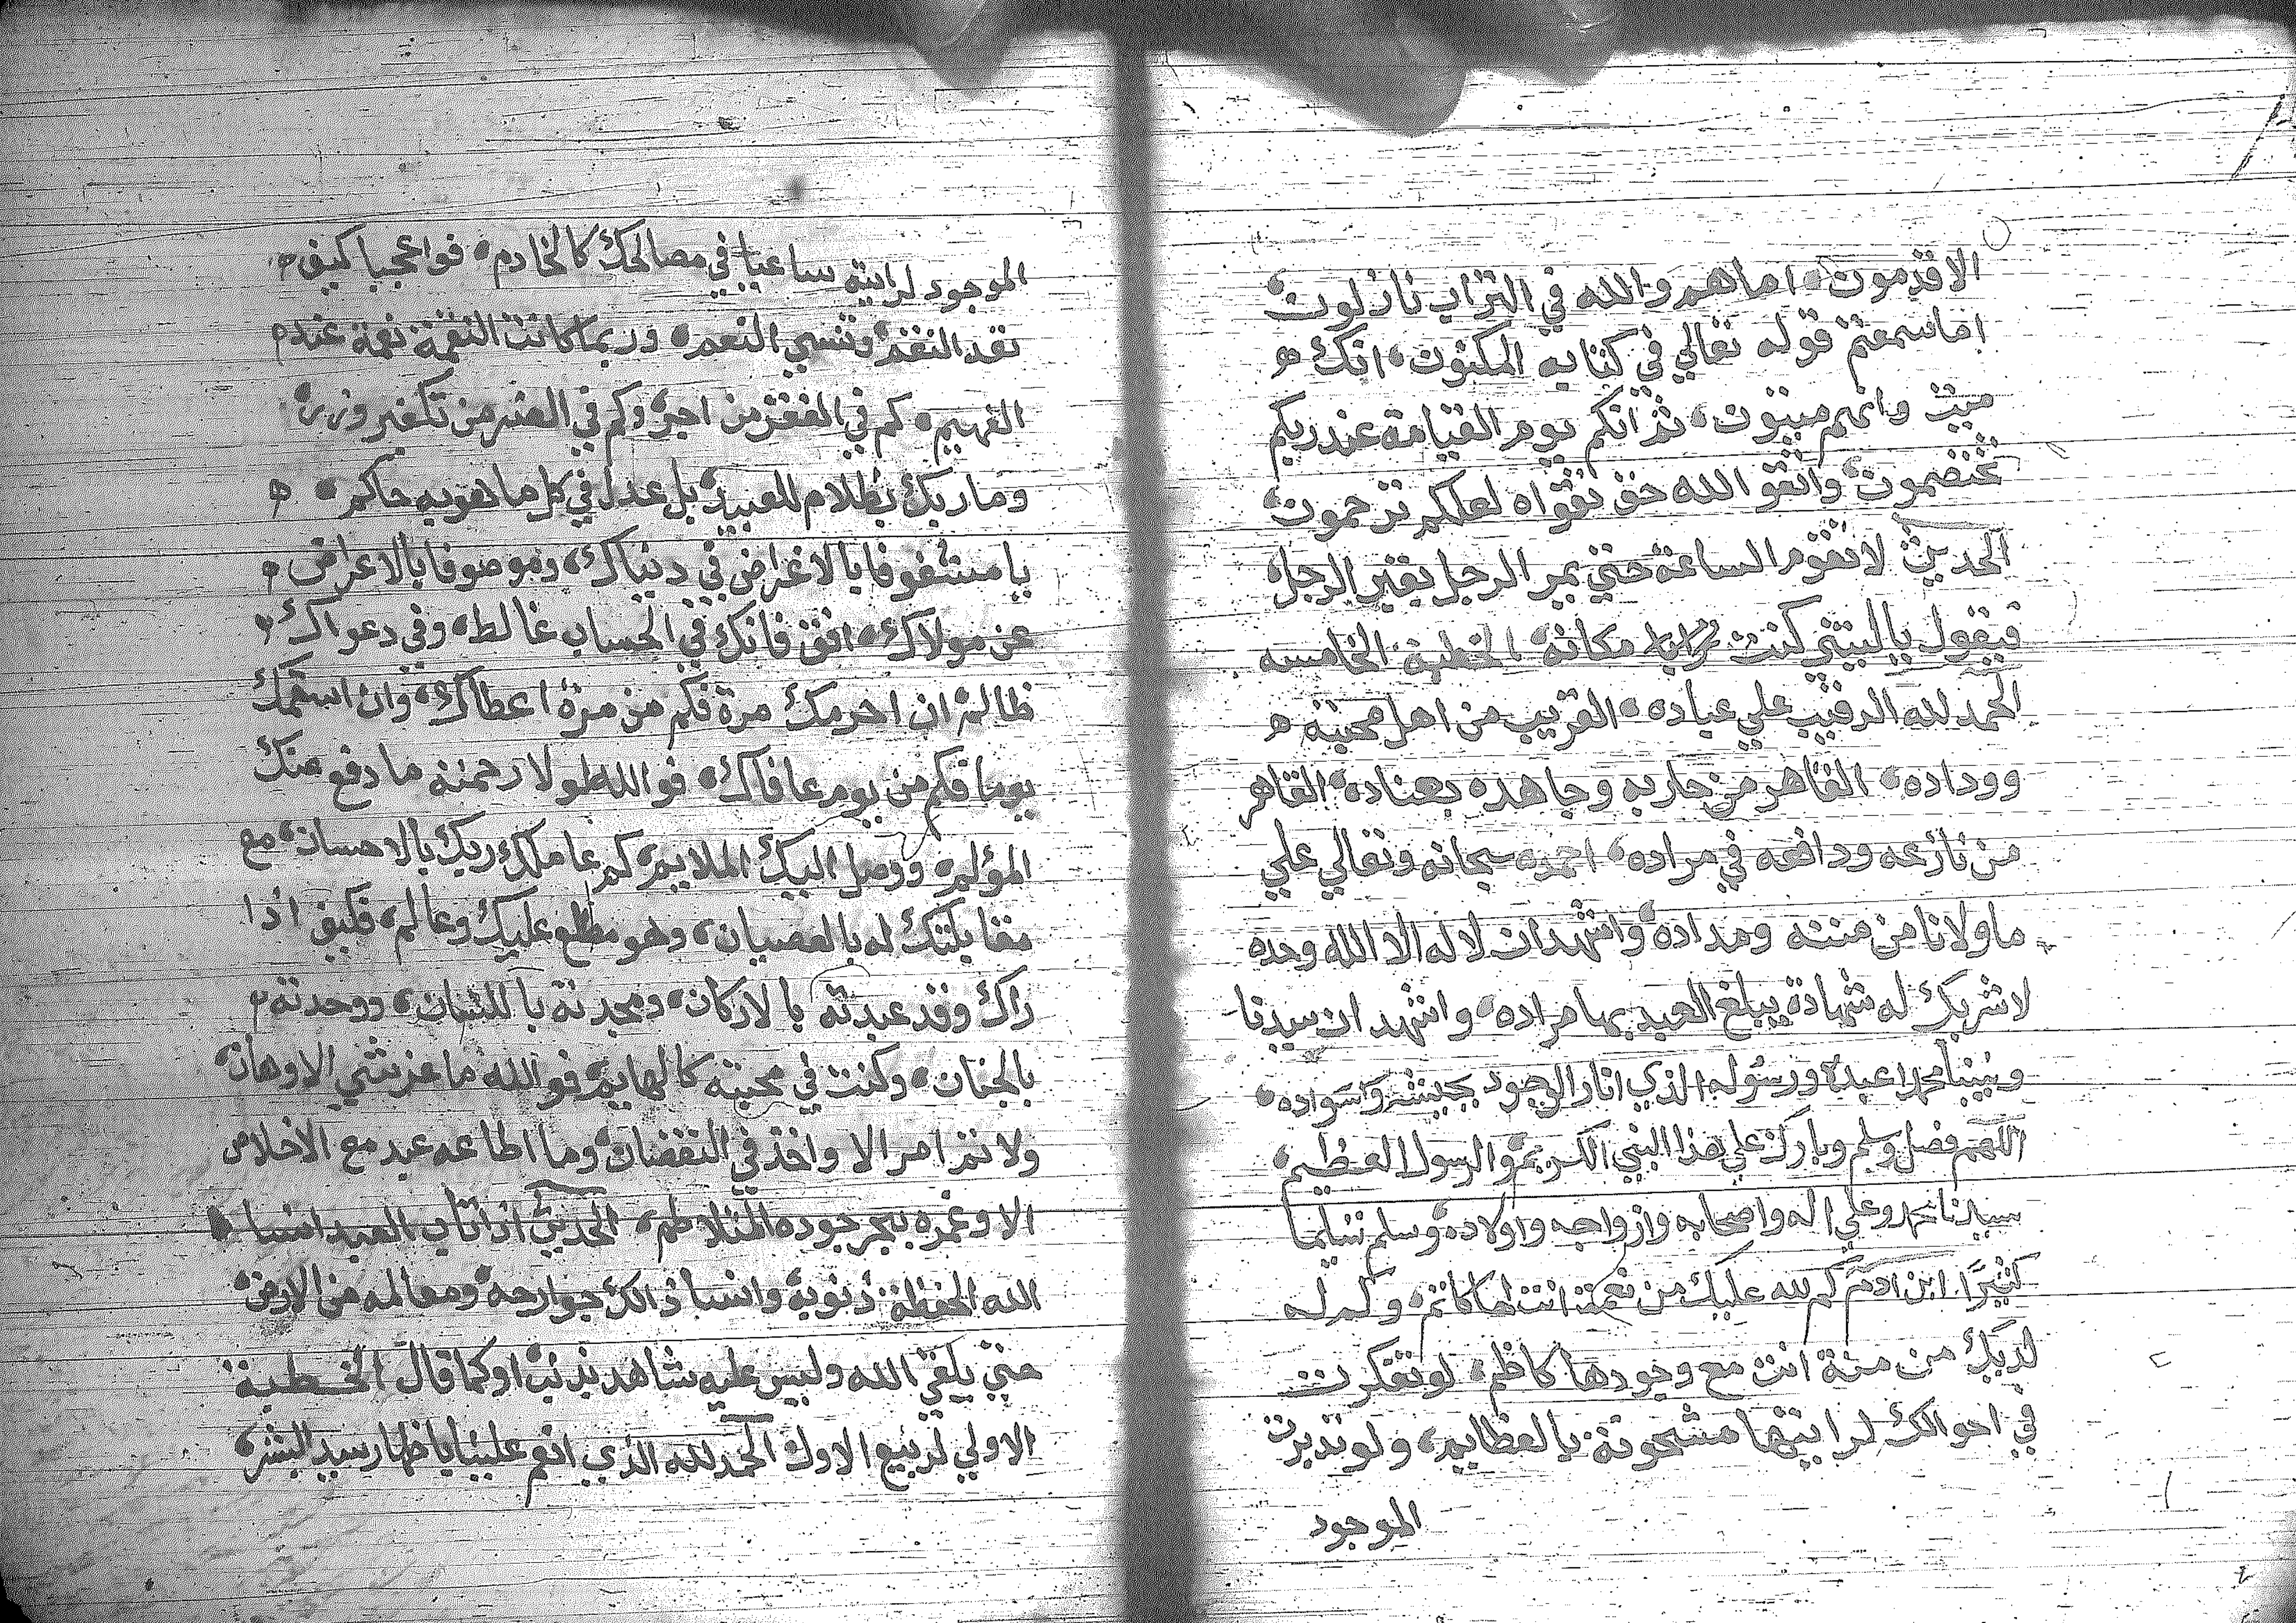 الاقدمون، اما هم والله في التراب نازلون،
اما سمعتم قوله تعالي في كتابه المكنون، انك ه
ميت وانهم ميتون، ثم انكم يوم القيامة عند ربكم
تختصمون، واتقو الله حق تقواه لعلكم ترحمون،
الحديث لا تقوم الساعة حتي يمر الرجل بقبر الرجل،
فيقول ياليتني كنت مكانه الخطبة الخامسه
الحمد لله الرقيب علي عباده، القريب من اهل محبته ه
ووداده، القاهر من حاربه وجاهده بعناده، القاهر
من نازعه ودافعه في مراده، احمده سبحانه وتعالي علي
ما ولانا من مننه ومداده، واشهد ان لا له الا الله وحده
لا شريك له شهادة يبلغ العبد بها مراده، واشهد ان سيدنا
ونبينا محمدا عبده ورسوله الذي انار الوجود بجيشه وسواده،
اللهم فصل وسلم وبارك علي هذا النبي الكريم، والرسول العظيم،
سيدنا محمد وعلي اله واصحابه وازواجه واولاده، وسلم تسليما
كثيرا، ابن ادم كم لله عليك من نعمة انت لها كاتم، وكم له
لديك من منة انت مع وجودها كاظم، لو تفكرت
في احوالك لرايتها مشحونة بالعظايم، ولو تدبرت
الموجود
الموجود لرايته ساعيا في مصالحك كالخادم، فواعجبا كيف
تعد النقم، وتنسي النعم، وربما كانت النقمة نعمة عند
الفهيم، كم في الفقر من اجر، وكم في الضر من تكفير وزر،
وما ربك بظلام للعبيد، بل عدل في كل ما هو به حاكم، ه
يا مشغوفا بالاغراض في دنياك، وموصوفا بالاعراض
عن مولاك، افق فانك في الحساب غالط، وفي دعواك
ظالم، ان احرمك مرة فكم من مرة اعطاك، وان اسقمك
يوما فكم من يوم عافاك، فوالله لولا رحمته ما دفع عنك
المؤلم، ووصل اليك الملايم، كم عاملك ربك بالاحسان، مع
مقابلتك له بالعصيان، وهو مطلع عليك وعالم، فكيف اذا
راك وقد عبدته بالاركان، ومجدته باللسان، ووحدته
بالجنان، وكنت في محبته كالهايم، فوالله ما عز شي الا وهان،
ولا تم امر الا واخذ في النقصان، وما اطاعه عبد مع الاخلاص
الا وغمره ببحر جوده المتلاطم، الحديث اذا تاب العبد انسا
الله الحفظة ذنوبه، وانسا ذالك جوارحه، ومعالمه من الارض،
حتي يلقي الله وليس عليه شاهد بذنب، او كما قال الخطبة
الاولي لربيع الاول الحمد لله الذي انعم علينا باظهار سيد البشر،